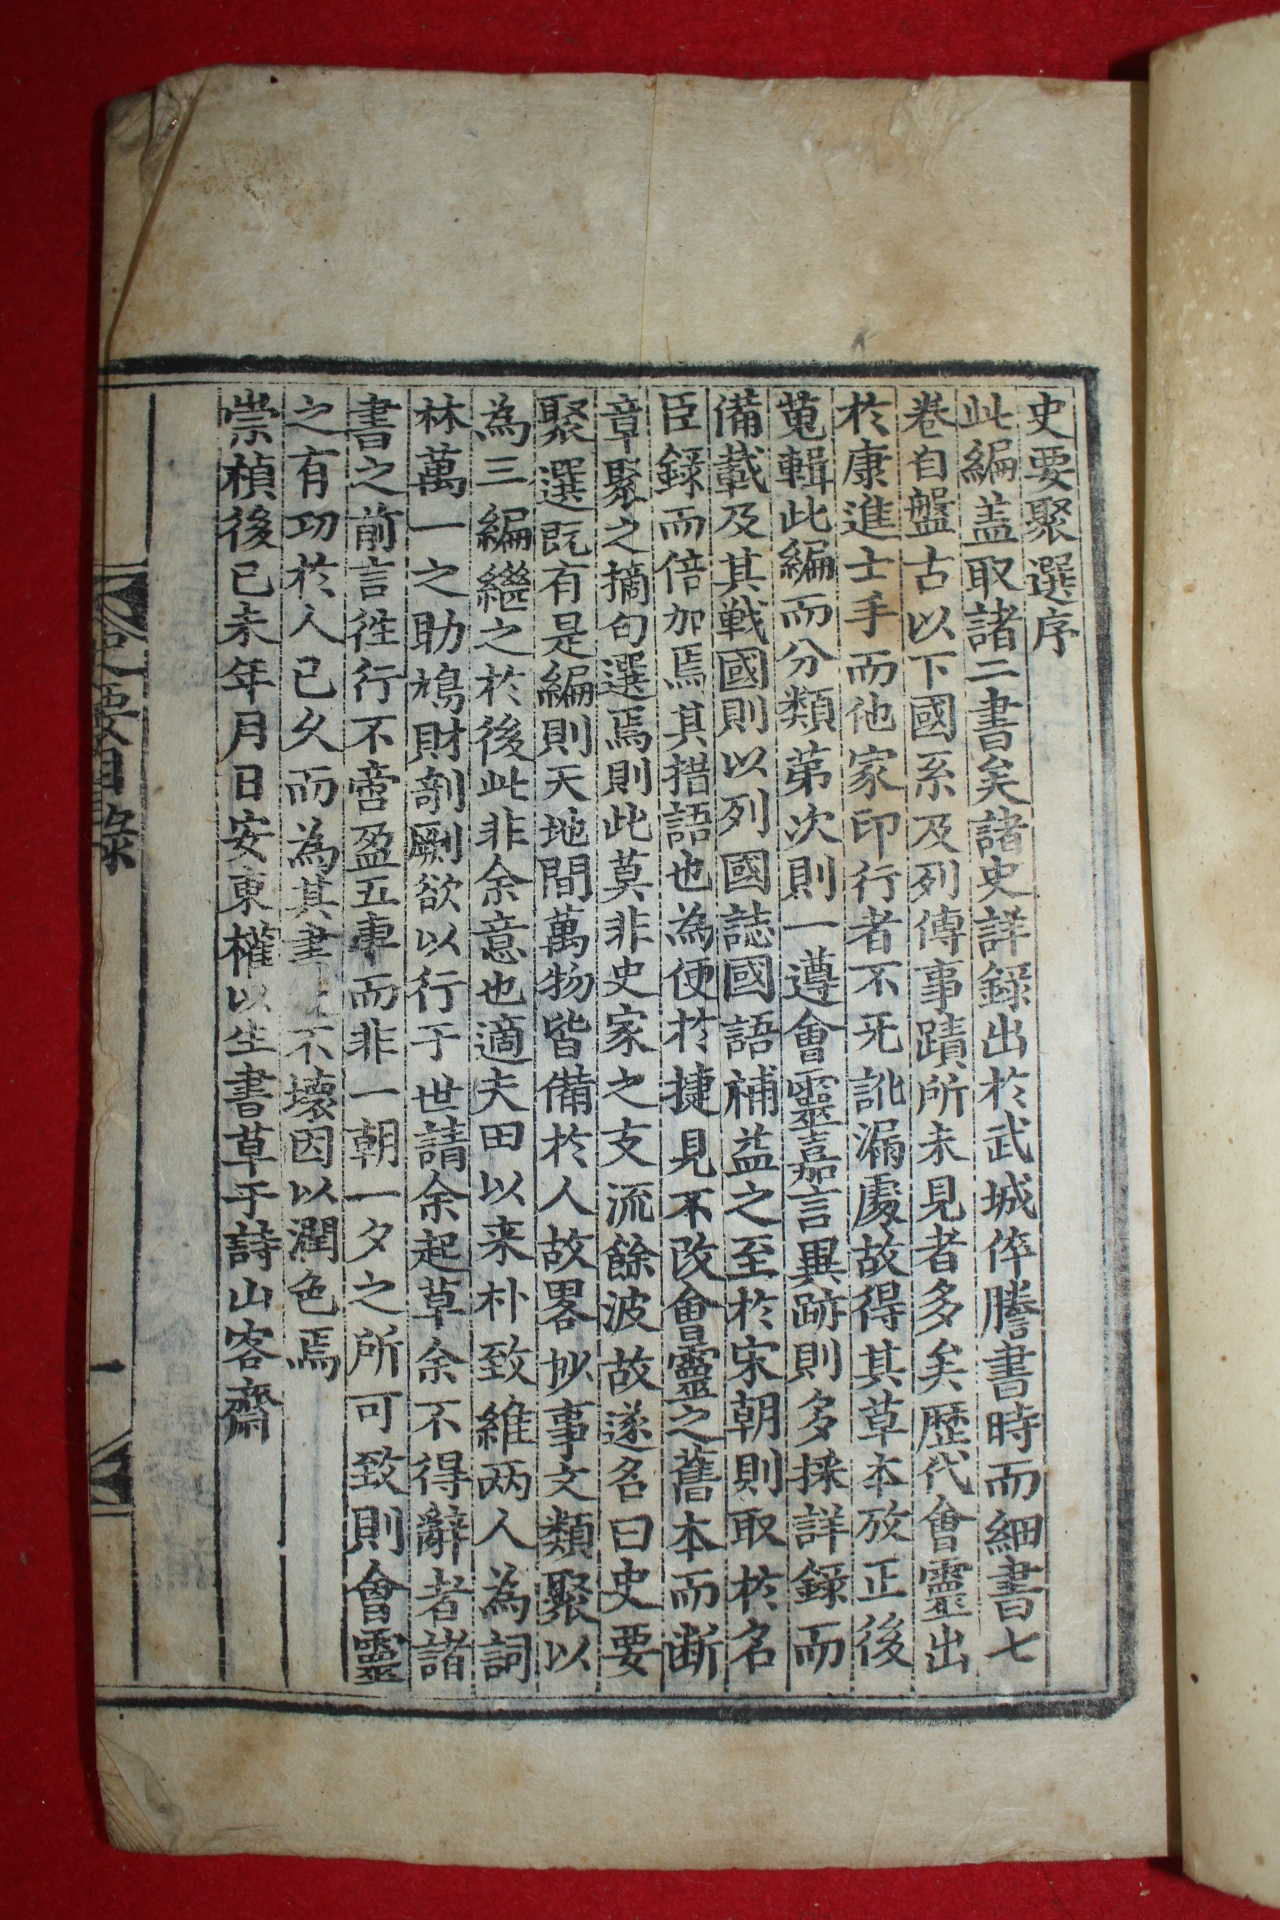 史要聚選序
此編盖取諸二書矣諸史詳録出於武城倅謄書時而細書七
卷自盤古以下國系及列傳事蹟所未見者多矣歷代會靈出
於康進士手而他家印行者不无訛漏處故得其草本攷正後
蒐輯此編而分類第次則一遵會靈嘉言異跡則多採詳録而
備載及其戦國則以列國誌國語補益之至於宋朝則取於名
臣録而倍加焉其措語也為便於捷見不改會靈之舊本而断
章聚之摘句選焉則此莫非史家之支流餘波故遂名曰史要
聚選既有是編則天地間萬物皆備於人故畧抄事文類聚以
為三編継之於後此非余意也適夫田以来朴致維两人為詞
林萬一之助鳩財剞劂欲以行于世請余起草余不得辭者諸
書之前言徃行不啻盈五車而非一朝一夕之所可致則會靈
之有功於人已久而為其書不壊因以潤色焉
崇楨後己未年月日安東權以生書草于詩山客齋
史要目錄
一